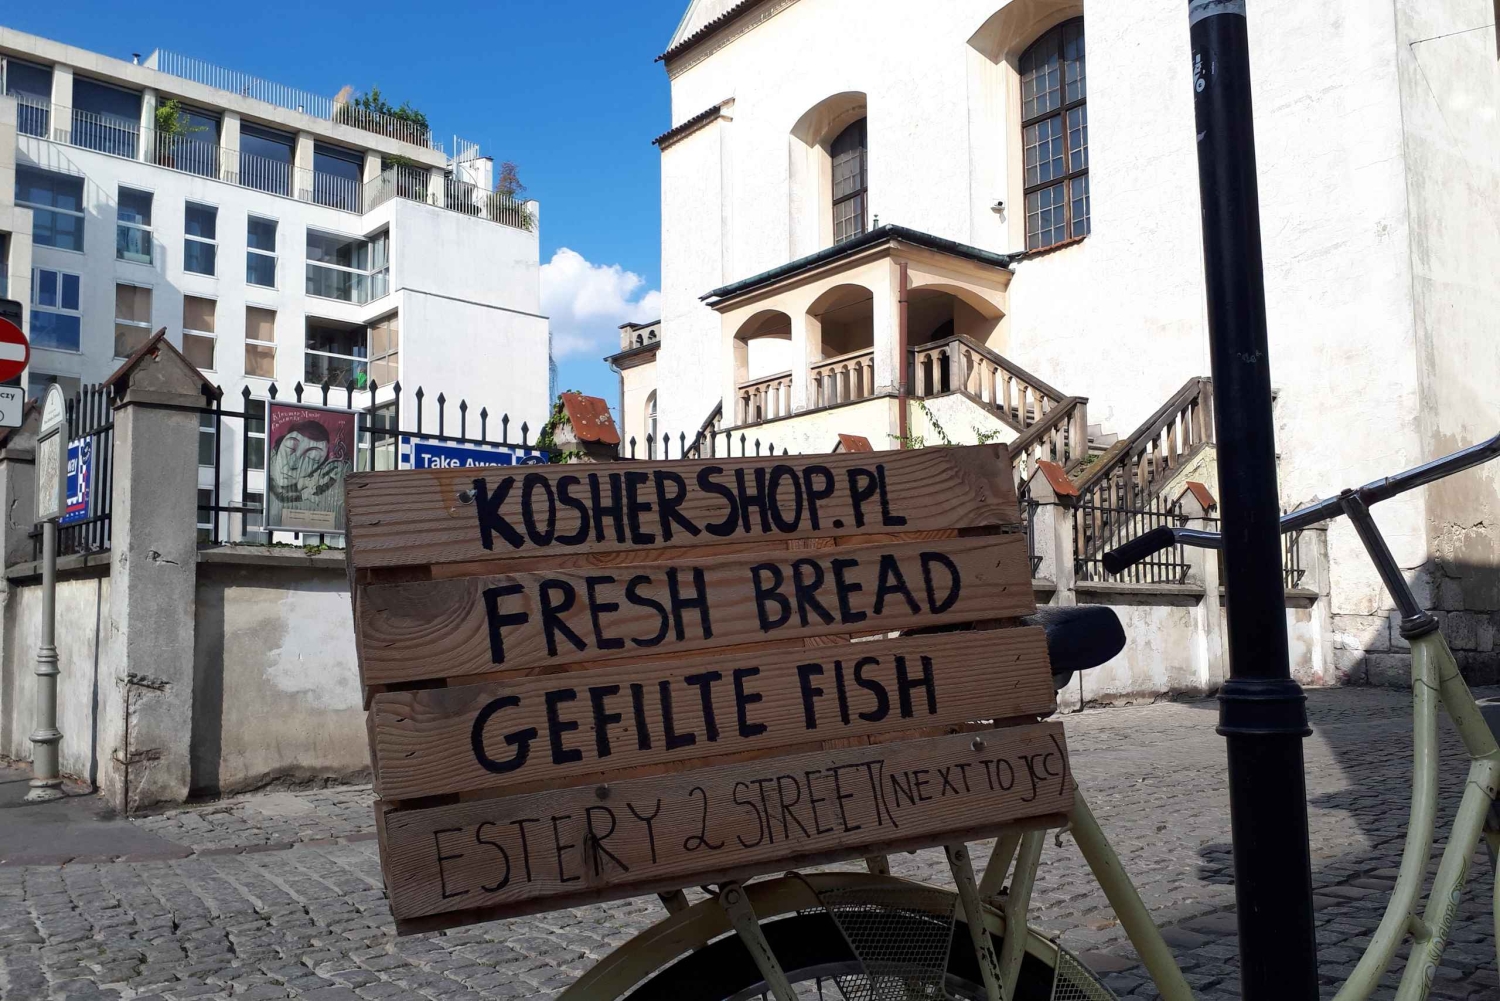 KOSHERSHOP.PL
FRESH BREAD
GEFILTE FISH
ESTERY 2 STREET (NEXT TO JCC)
Take Away
Klezmer Music